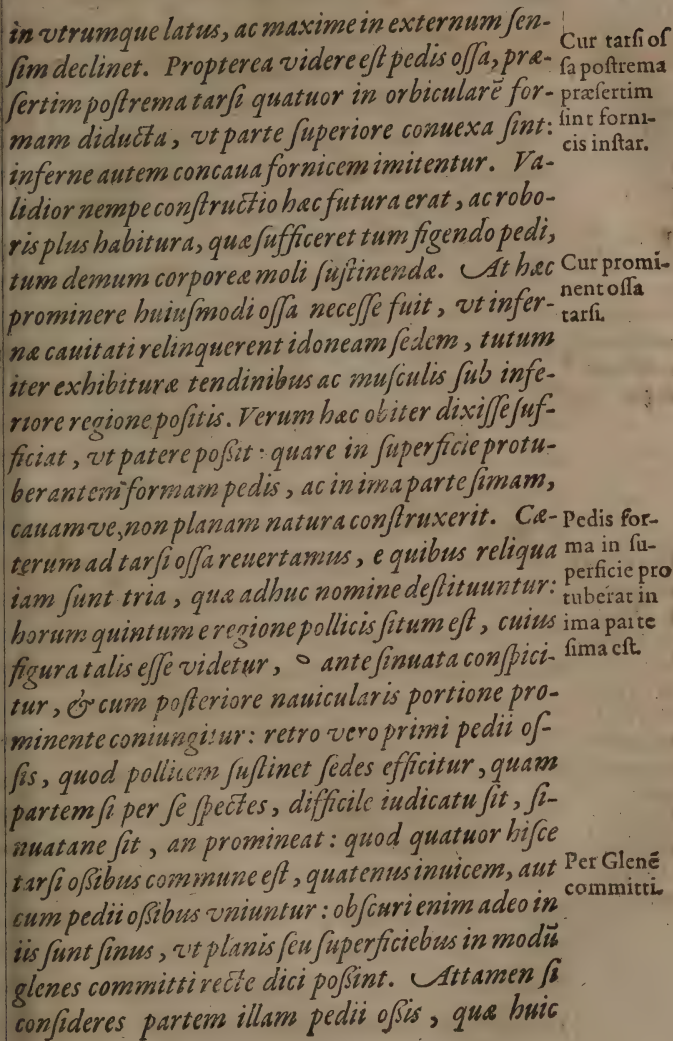 in vtrumque latus, ac maxime in externum ſen-
ſim declinet. Propterea videre eſt pedis oſſa, præ-
ſertim poſtrema tarſi quatuor in orbicularē for-
mam diducta, vt parte ſuperiore conuexa ſint:
inferne autem concaua fornicem imitentur. Va-
lidior nempe conſtructio hæc futura erat, ac robo-
ris plus habitura, quæ ſufficeret tum figendo pedi,
tum demum corporeæ moli ſuſtinendæ. At hæc
prominere huiuſmodi oſſa neceſſe fuit, vt infer-
næ cauitati relinquerent idoneam ſedem, tutum
iter exhibituræ tendinibus ac muſculis ſub infe-
riore regione poſitis. Verum hæc obiter dixiſſe ſuf-
ficiat, vt patere poſsit: quare in ſuperficie protu-
berantem formam pedis, ac in ima parte ſimam,
cauamve, non planam natura conſtruxerit. Cæ-
terum ad tarſi oſſa reuertamus, e quibus reliqua
iam ſunt tria, quæ adhuc nomine deſtituuntur:
horum quintum e regione pollicis ſitum eſt, cuius
figura talis eſſe videtur, ante ſinuata conſpici-
tur, & cum poſteriore nauicularis portione pro-
minente coniungitur: retro vero primi pedii oſ-
ſis, quod pollicem ſuſtinet ſedes efficitur, quam
partem ſi per ſe ſpectes, difficile iudicatu ſit, ſi-
nuatane ſit, an promineat: quod quatuor hiſce
tarſi oſsibus commune eſt, quatenus inuicem, aut
cum pedii oſsibus vniuntur: obſcuri enim adeo in
iis ſunt ſinus, vt planis ſeu ſuperficiebus in modū
glenes committi recte dici poſsint. Attamen ſi
conſideres partem illam pedii oſsis, quæ huic
Cur tarſi oſ
ſa poſtrema
præſertim
ſint forni-
cis inſtar.
Cur promi-
nent oſſa
tarſi.
Pedis for-
ma in ſu-
perficie pro
tuberat in
ima parte
ſima eſt.
Per Glenē
committi.